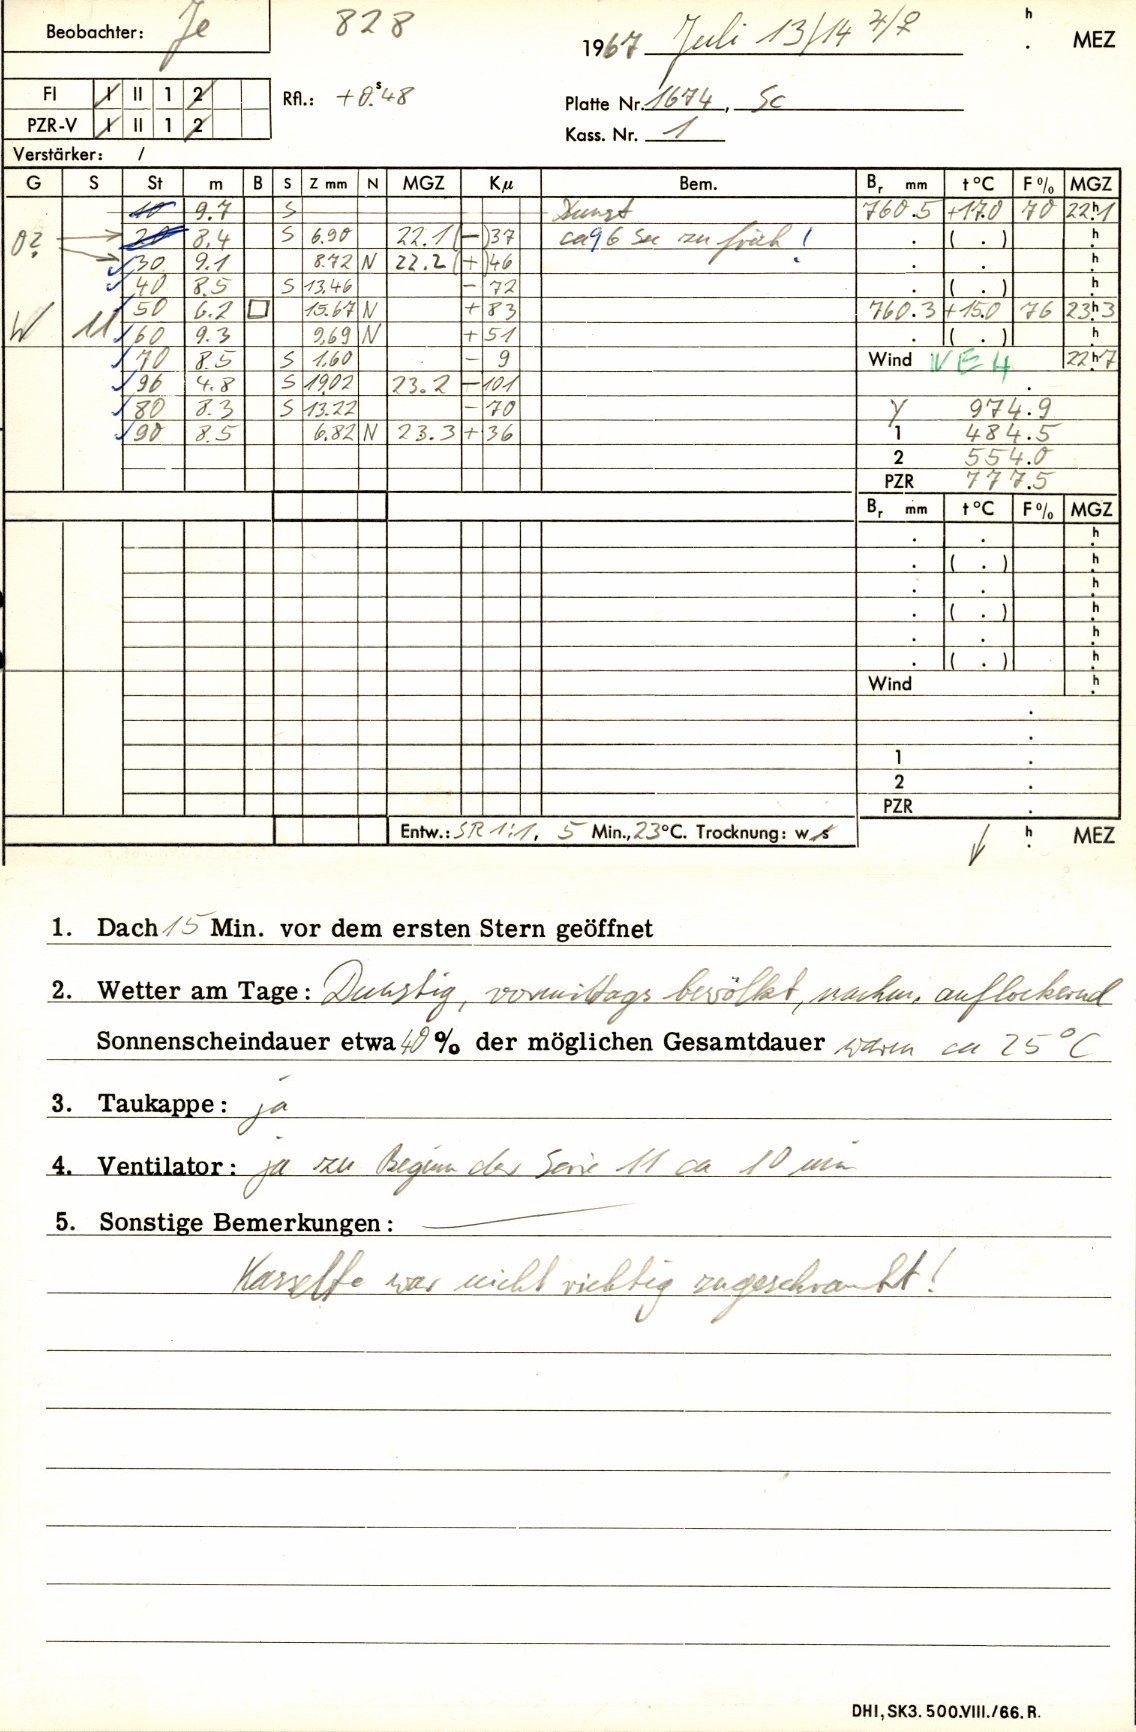 Beobachter: Je 828 1967 Juli 13/14 ♃/♀ h . MEZ
FI I II 1 2 Rfl.: +0.ˢ48 Platte Nr. 1674, Sc
PZR-V I II 1 2 Kass. Nr. 1
Verstärker: /
G S St m B S Z mm N MGZ Kμ Bem. Bᵣ mm t °C F % MGZ
10 9.7 S Dunst 760.5 +17.0 70 22ʰ.1
0? 20 8.4 S 6.90 22.1 (-) 37 ca 96 Sec zu früh! . ( . ) h
30 9.1 8.72 N 22.2 (+) 46 . . h
40 8.5 S 13.46 - 72 . ( . ) h
50 6.2 □ 15.67 N + 83 760.3 +15.0 76 23ʰ.3
W 11 60 9.3 9,69 N + 51 . ( . ) h
70 8.5 S 1.60 - 9 Wind VE4 22ʰ.7
96 4.8 S 19.02 23.2 - 101 .
80 8.3 S 13.22 - 70 γ 974.9
90 8.5 6.82 N 23.3 + 36 1 484.5
2 554.0
PZR 777.5
Bᵣ mm t °C F % MGZ
. . h
. ( . ) h
. . h
. ( . ) h
. . h
. ( . ) h
Wind h
.
.
1 .
2 .
PZR .
Entw.: SR 1:1, 5 Min., 23°C. Trocknung: w s h . MEZ
1. Dach 15 Min. vor dem ersten Stern geöffnet
2. Wetter am Tage: Dunstig, vormittags bewölkt, nachm. auflockernd
Sonnenscheindauer etwa 40 % der möglichen Gesamtdauer waren ca 25°C
3. Taukappe: ja
4. Ventilator: ja zu Beginn der Serie 11 ca 10 min
5. Sonstige Bemerkungen:
Kassette war nicht richtig zugeschraubt!
DHI, SK3. 500.VIII./66. R.